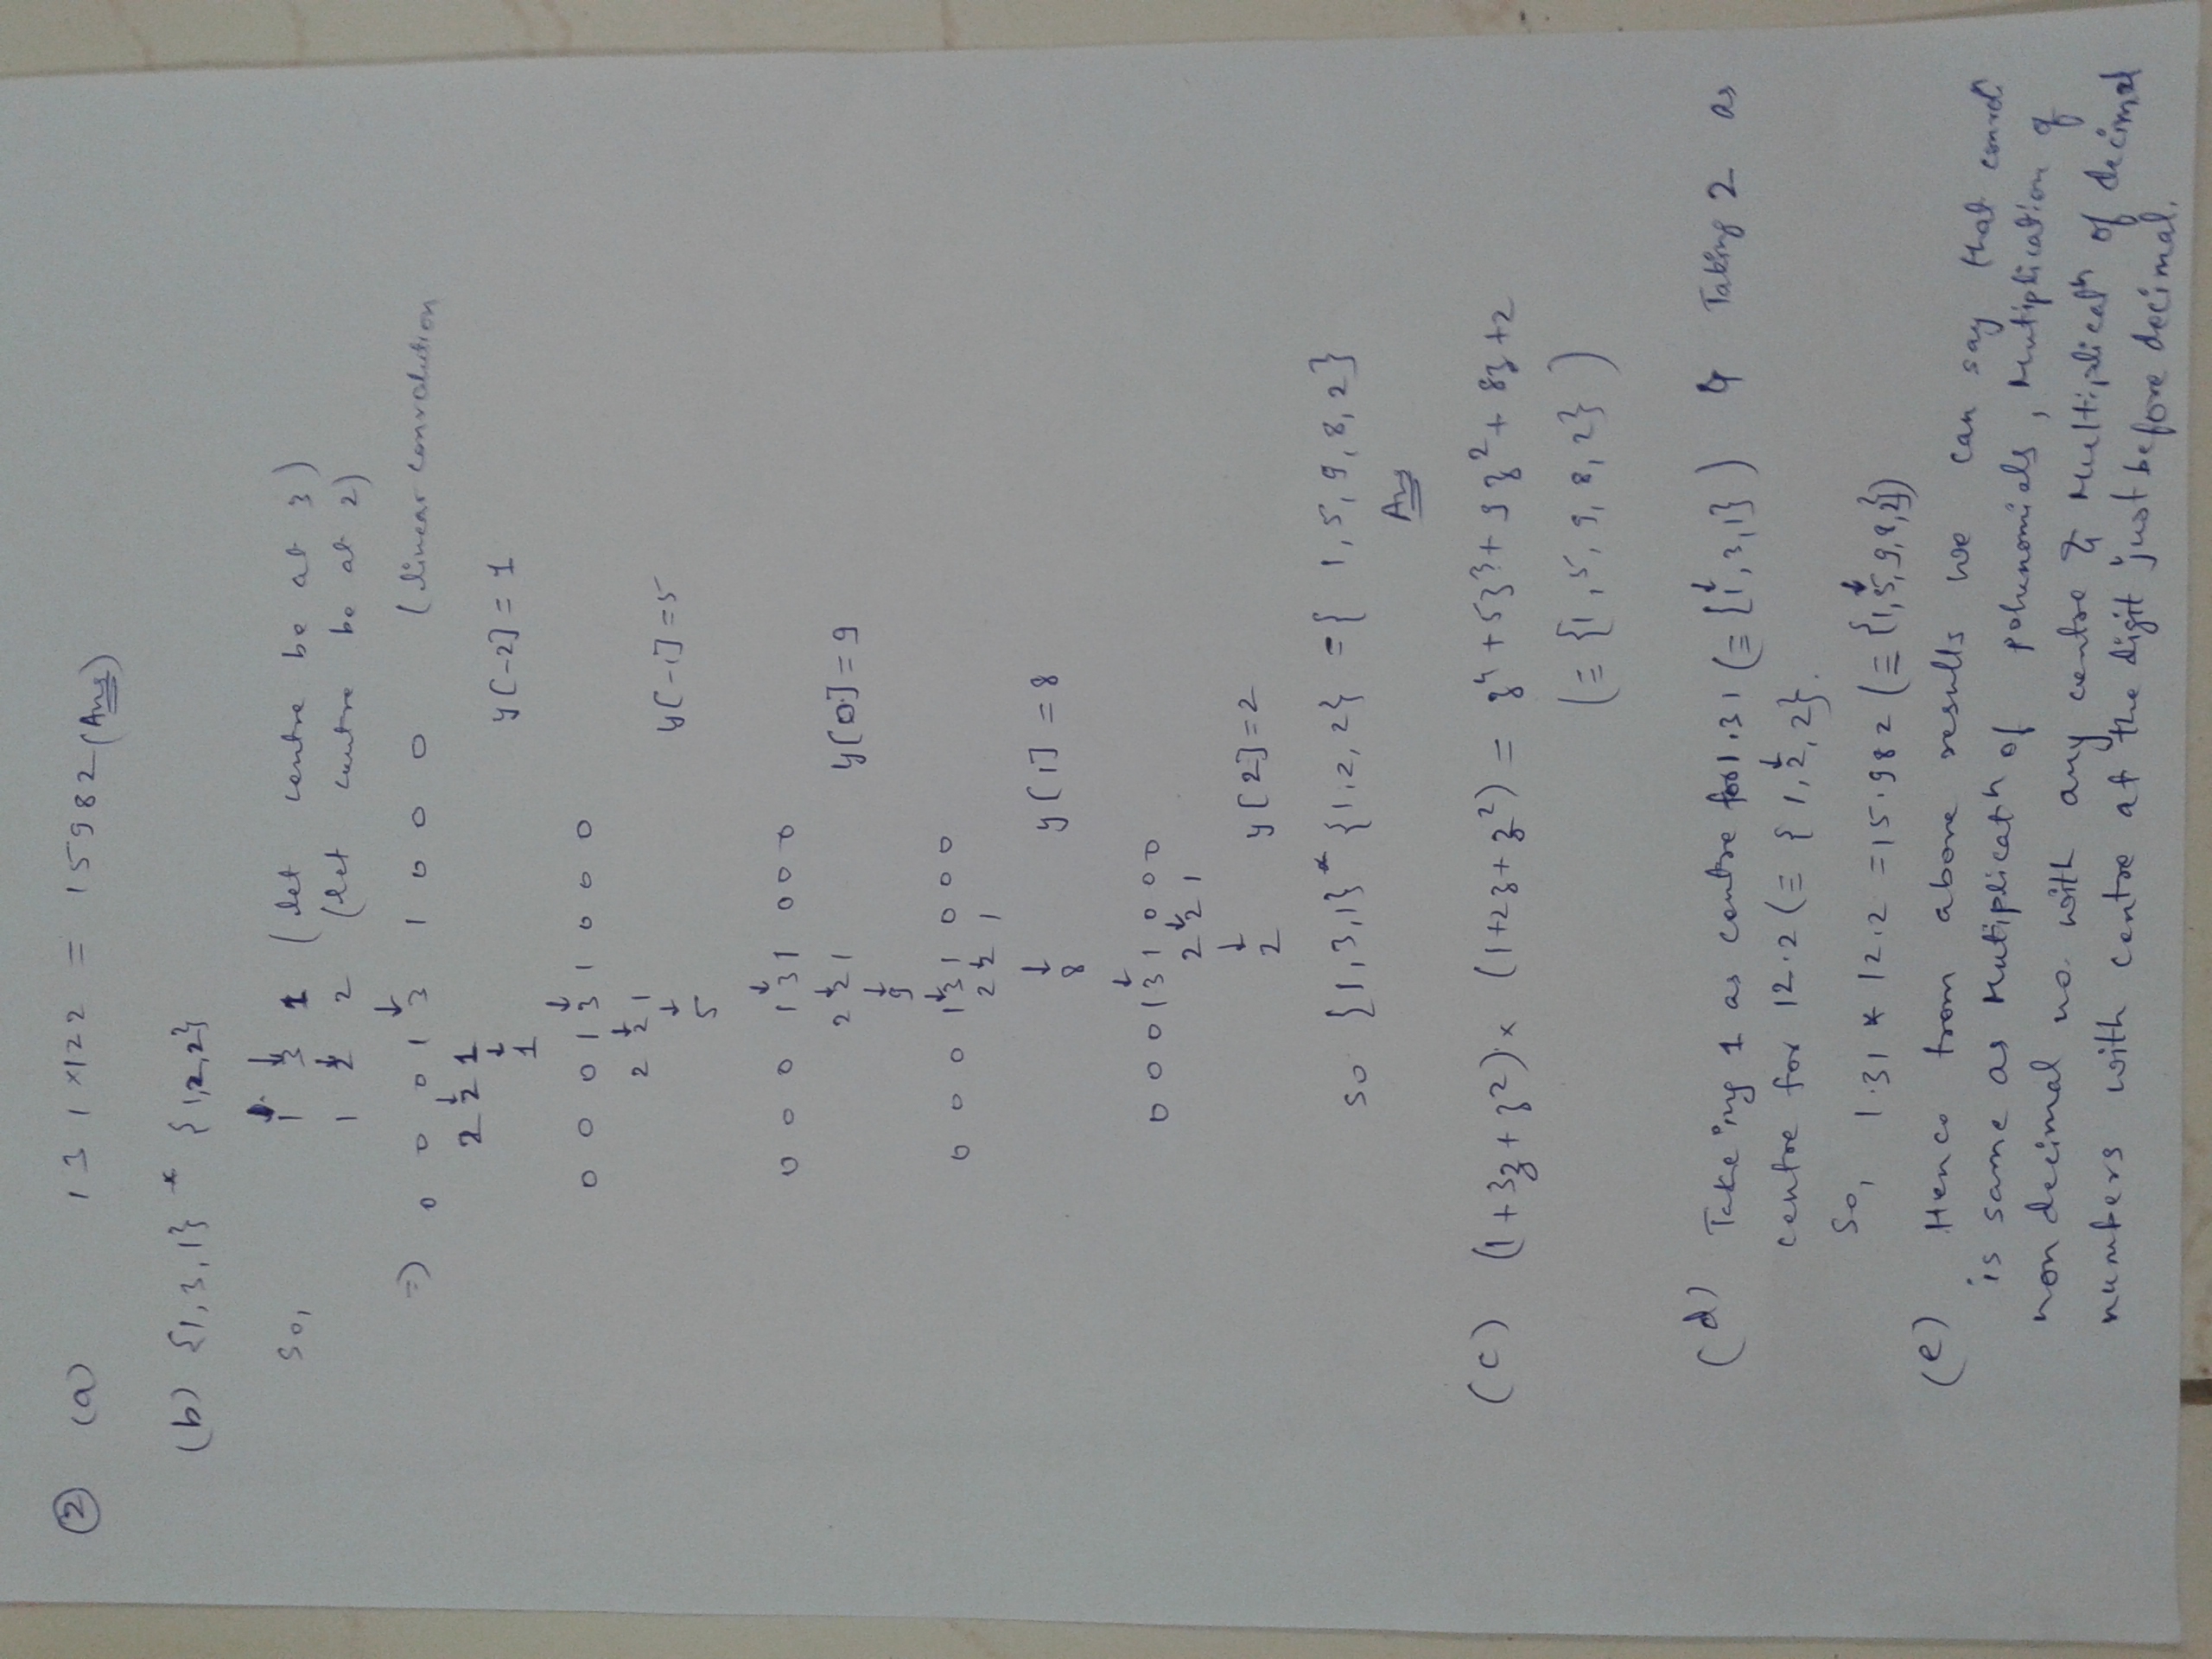 ② (a) 131 × 122 = 15982 (Ans)
(b) {1,3,1} * {1,2,2}
So, ↓ ↓
1 3 1 (let centre be at 3)
↓
1 2 2 (let centre be at 2)
↓
=> 0 0 0 1 3 1 0 0 0 (linear convolution
↓
2 2 1
↓ y[-2] = 1
1
↓
0 0 0 1 3 1 0 0 0
↓
2 2 1
↓ y[-1] = 5
5
↓
0 0 0 1 3 1 0 0 0
↓
2 2 1 y[0] = 9
↓
9
↓
0 0 0 1 3 1 0 0 0
↓
2 2 1
↓ y[1] = 8
8
↓
0 0 0 1 3 1 0 0 0
↓
2 2 1
↓
2 y[2] = 2
so {1,3,1} * {1,2,2} = { 1,5,9,8,2}
Ans
(c) (1+3z+z²) × (1+2z+z²) = z⁴+5z³+9z²+8z+2
(≡ {1,5,9,8,2} )
(d) Takeing 1 as centre for 1.31 (≡ {1,3,1} ) & Taking 2 as
centre for 12.2 (≡ { 1,2,2}.
So, 1.31 * 12.2 = 15.982 (≡ {1,5,9,8,2})
(e) Hence from above results we can say that
is same as Mutiplicatⁿ of polunomials, Mutiplication of
non decimal no. with any centre & Multiplicatⁿ of decimal
numbers with centre at the digit just before decimal.